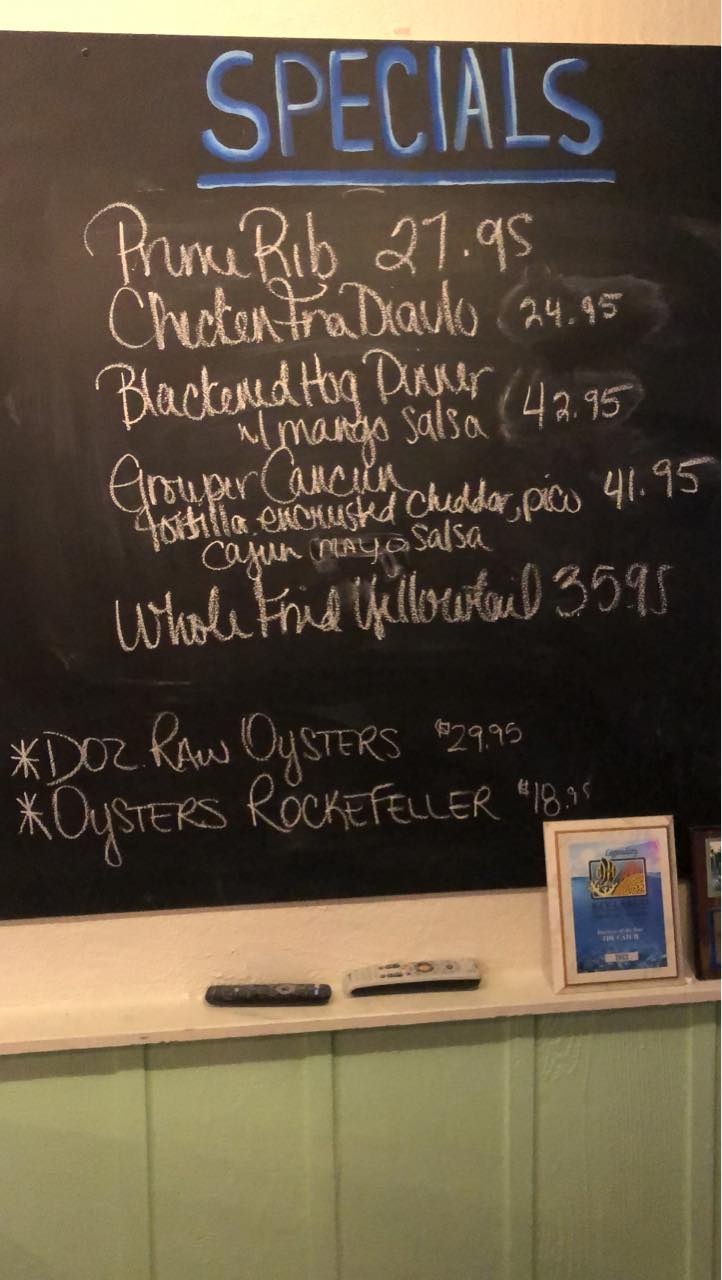 SPECIALS
Prime Rib 27.95
Chicken Fra Diavlo 24.95
Blackened Hog Dinner 42.95
w/ mango salsa
Grouper Cancun 41.95
tortilla encrusted cheddar, pico
cajun mayo salsa
Whole Fried Yellowtail 3595
*DOZ. RAW OYSTERS $29.95
*OYSTERS ROCKEFELLER $18.95
Legendary
THE CATCH